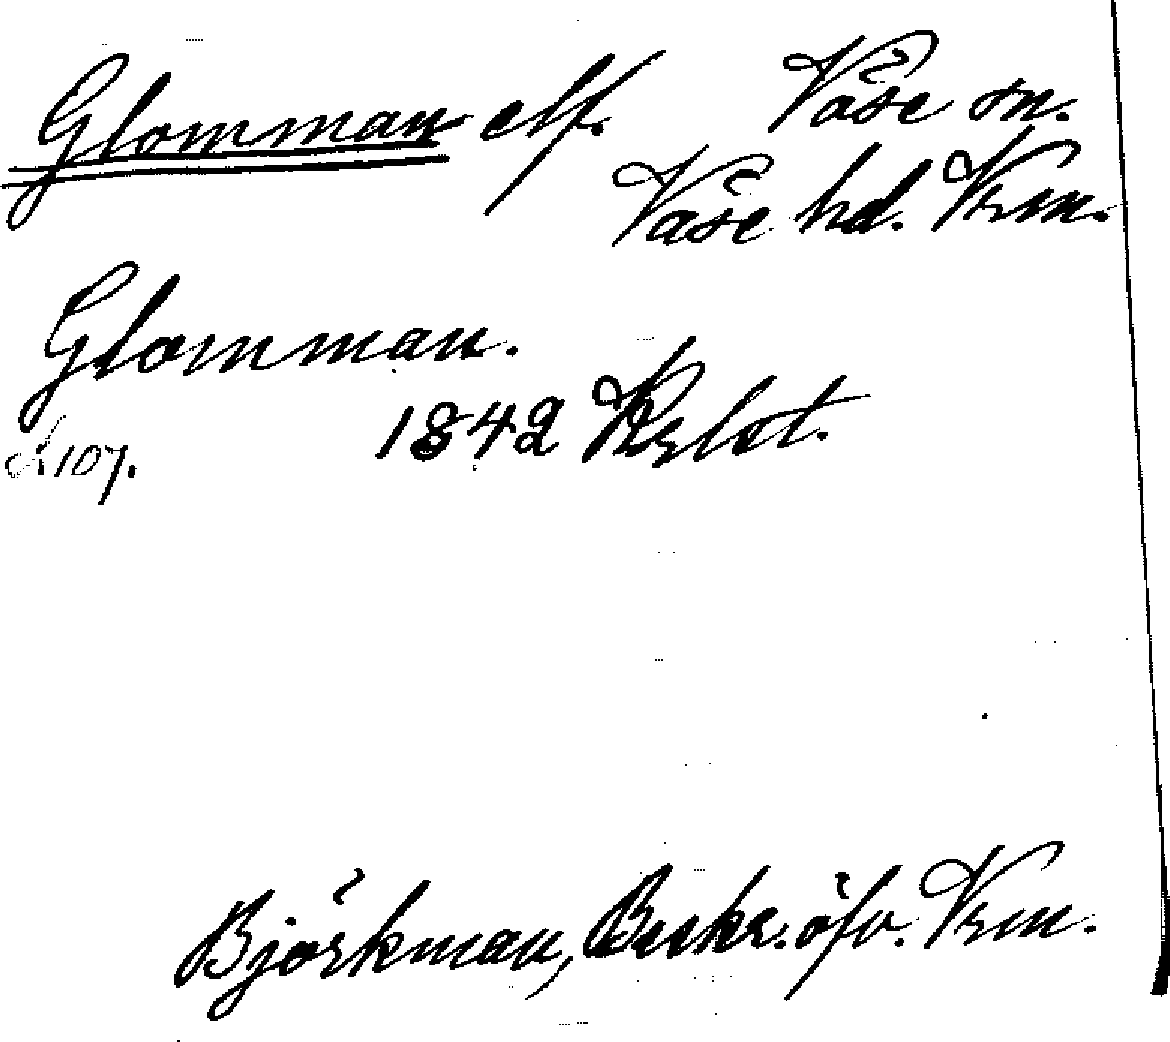 Glomman elf. Väse sn.
Väse hd. Vrm.
Glomman.
1842 Krlst.
I 107.
Björkman, Beskr. öfv. Vrm.